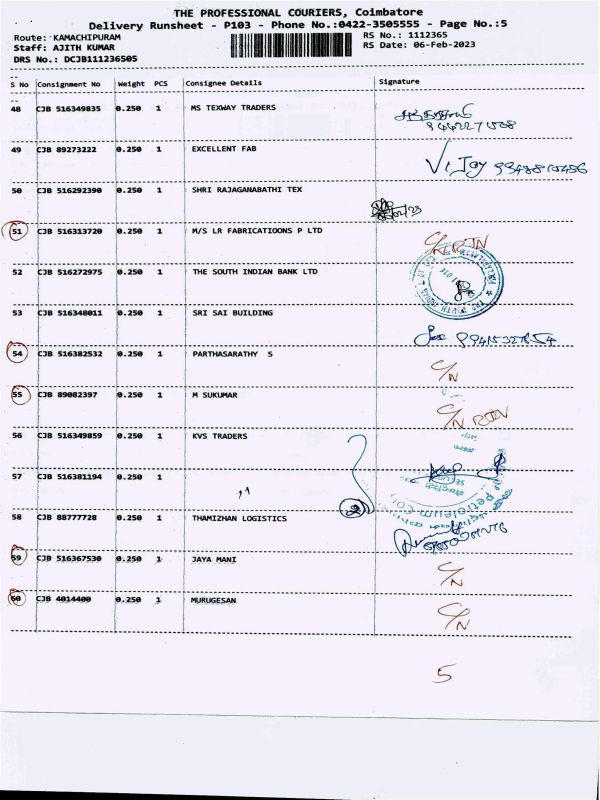 THE PROFESSIONAL COURIERS, Coimbatore
Delivery Runsheet - P103 - Phone No.:0422-3505555 - Page No.:5
Route: KAMACHIPURAM RS No.: 1112365
Staff: AJITH KUMAR RS Date: 06-Feb-2023
DRS No.: DCJB111236505
S No Consignment No Weight PCS Consignee Details Signature
48 CJB 516349835 0.250 1 MS TEXWAY TRADERS
49 CJB 89273222 0.250 1 EXCELLENT FAB
50 CJB 516292390 0.250 1 SHRI RAJAGANABATHI TEX
51 CJB 516313720 0.250 1 M/S LR FABRICATIOONS P LTD C/N RTN
52 CJB 516272975 0.250 1 THE SOUTH INDIAN BANK LTD
53 CJB 516348011 0.250 1 SRI SAI BUILDING
54 CJB 516382532 0.250 1 PARTHASARATHY S C/N
55 CJB 89082397 0.250 1 M SUKUMAR C/N RTN
56 CJB 516349859 0.250 1 KVS TRADERS
57 CJB 516381194 0.250 1 ,,
2
58 CJB 88777728 0.250 1 THAMIZHAN LOGISTICS
59 CJB 516367530 0.250 1 JAYA MANI C/N
60 CJB 4014400 0.250 1 MURUGESAN C/N
5